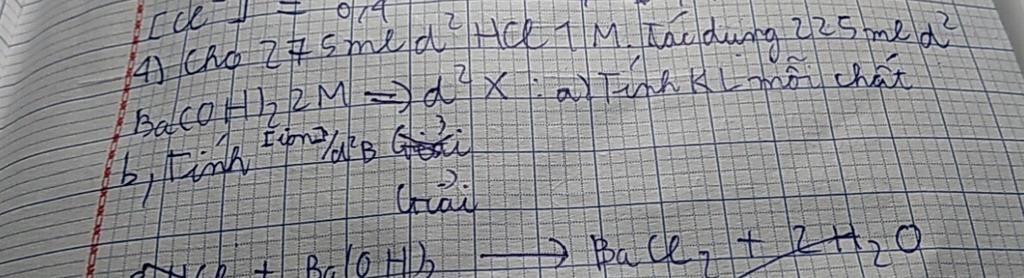 [Cl⁻] = 0,4
4) Cho 275ml d² HCl 1M. Tác dụng 225ml d²
Ba(OH)₂ 2M => d² X : a) Tính KL mỗi chất
b, Tính [ion]/d²B
Giải
+ Ba(OH)₂ → BaCl₂ + 2H₂O